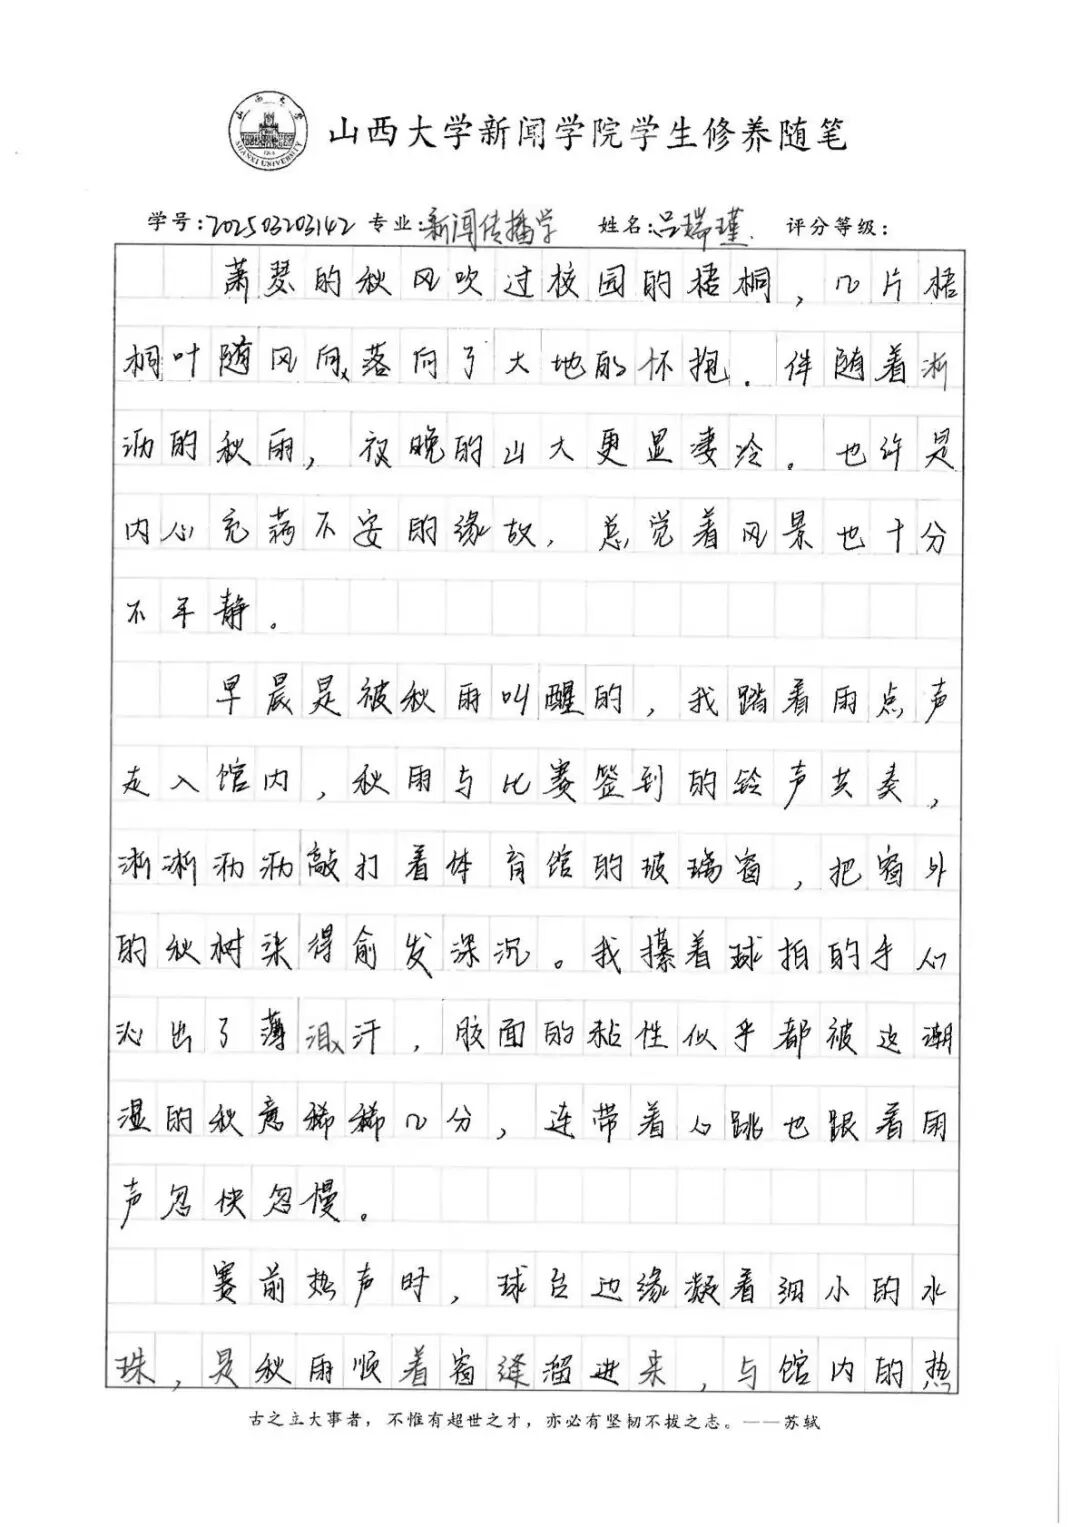 山西大学新闻学院学生修养随笔
学号:202503203142 专业:新闻传播学 姓名:吕瑞瑾. 评分等级:
萧瑟的秋风吹过校园的梧桐，几片梧
桐叶随风向落向了大地的怀抱．伴随着淅
沥的秋雨，夜晚的山大更显凄冷．也许是
内心充满不安的缘故，总觉着风景也十分
不平静。
早晨是被秋雨叫醒的，我踏着雨点声
走入馆内，秋雨与比赛签到的铃声共奏，
淅淅沥沥敲打着体育馆的玻璃窗，把窗外
的秋树染得俞发深沉。我攥着球拍的手心
沁出了薄泪汗，胶面的粘性似乎都被这潮
湿的秋意稀稀几分，连带着心跳也跟着雨
声忽快忽慢。
赛前热声时，球台边缘凝着细小的水
珠，是秋雨顺着窗缝溜进来，与馆内的热
古之立大事者，不惟有超世之才，亦必有坚韧不拔之志。——苏轼
山西大学
SHANXI UNIVERSITY